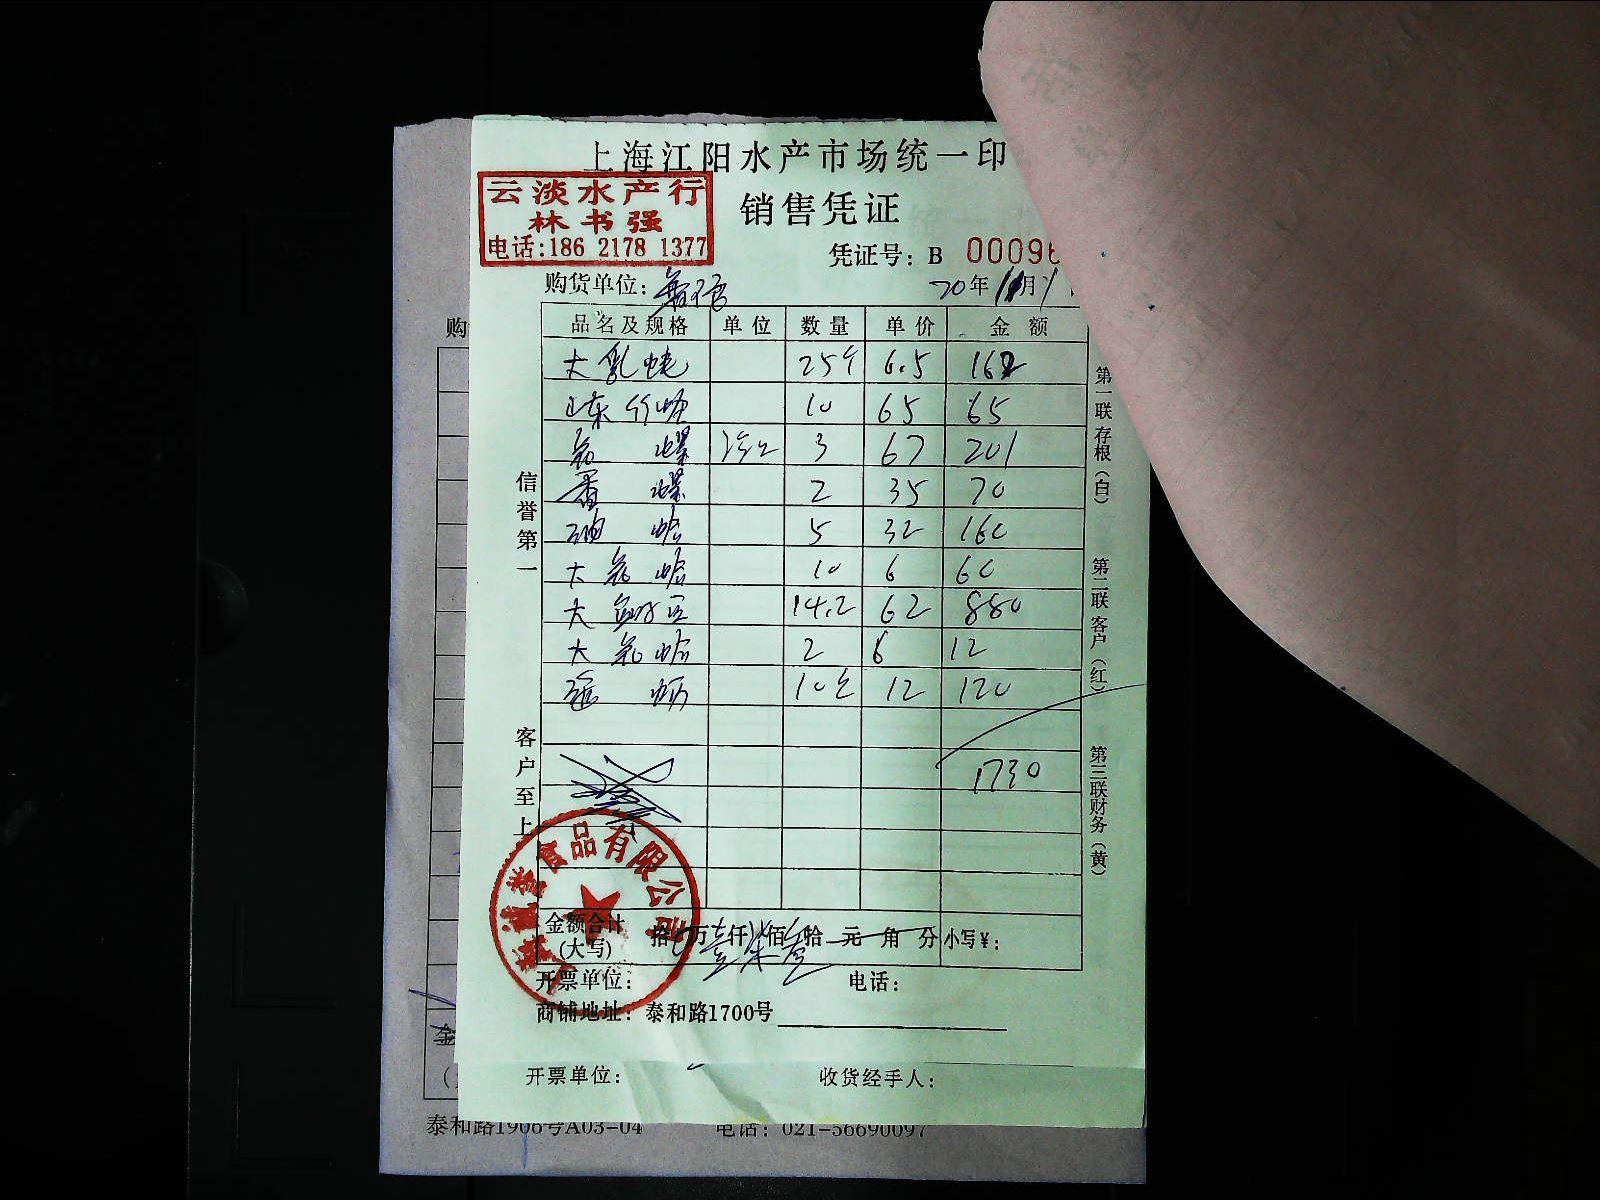 上海江阳水产市场统一印
云淡水产行
林书强
电话:186 2178 1377
销售凭证
凭证号: B 00096
购货单位:
20年11月1
品名及规格 单位 数量 单价 金额
大 25个 6.5 162
山东 10 65 65
螺 3 67 201
螺 2 35 70
5 32 160
大 10 6 60
大 14.2 62 880
大 2 6 12
10 12 120
1730
信誉第一
客户至上
第一联存根(白)
第二联客户(红)
第三联财务(黄)
食品有限公司
金额合计
(大写)
拾 万 仟 佰 拾 元 角 分 小写¥:
开票单位: 电话:
商铺地址: 泰和路1700号
开票单位: 收货经手人:
泰和路1906号A03-04 电话: 021-56690097
购
金